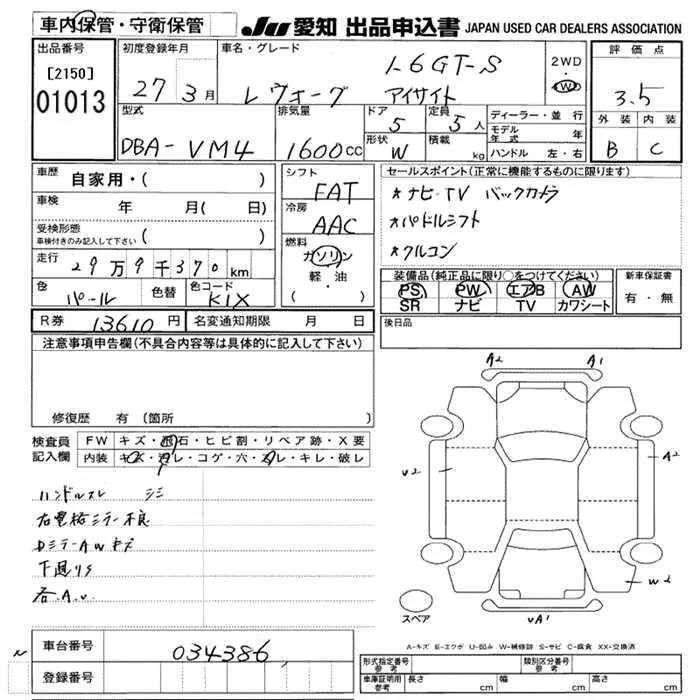 車内保管・守衛保管
JU 愛知 出品申込書 JAPAN USED CAR DEALERS ASSOCIATION
出品番号
[2150]
01013
初度登録年月
27 3月
車名・グレード
1.6GT-S
レヴォーグ アイサイト
2WD
・
4WD
評価点
3.5
外装 内装
B C
型式
DBA- VM4
排気量
1600cc
ドア
5
定員
5人
形状
W
積載
kg
ディーラー・並行
モデル年式 年
ハンドル 左・右
車歴
自家用・( )
車検
年 月( 日)
受検形態
車検付きのみ記入して下さい ( )
走行
29万9千370km
色
パール
色替
色コード
K1X
シフト
FAT
冷房
AAC
燃料
ガソリン
軽・油
( )
セールスポイント(正常に機能するものに限ります)
★ナビ・TV バックカメラ
★パドルシフト
★クルコン
装備品(純正品に限り○をつけてください)
PS PW エアB AW
SR ナビ TV カワシート
新車保証書
有・無
R券 13610円
名変通知期限 月 日
後日品
注意事項申告欄(不具合内容等は具体的に記入して下さい)
修復歴 有 (箇所 )
検査員
記入欄
FW キズ・飛石・ヒビ割・リペア跡・X要
内装 キズ・汚レ・コゲ・穴・スレ・キレ・破レ
ハンドルスレ シミ
右電格ミラー不良
Dミラー AWキズ
下廻りS
各.A.U.
A2 A1
U2
A2
W2
UA1
スペア
A-キズ E-エクボ U-凹み W-補修跡 S-サビ C-腐食 XX-交換済
車台番号
034386
登録番号
形式指定番号
参考
類別区分番号
参考
車庫証明用
参考
長さ cm 幅 cm 高さ cm